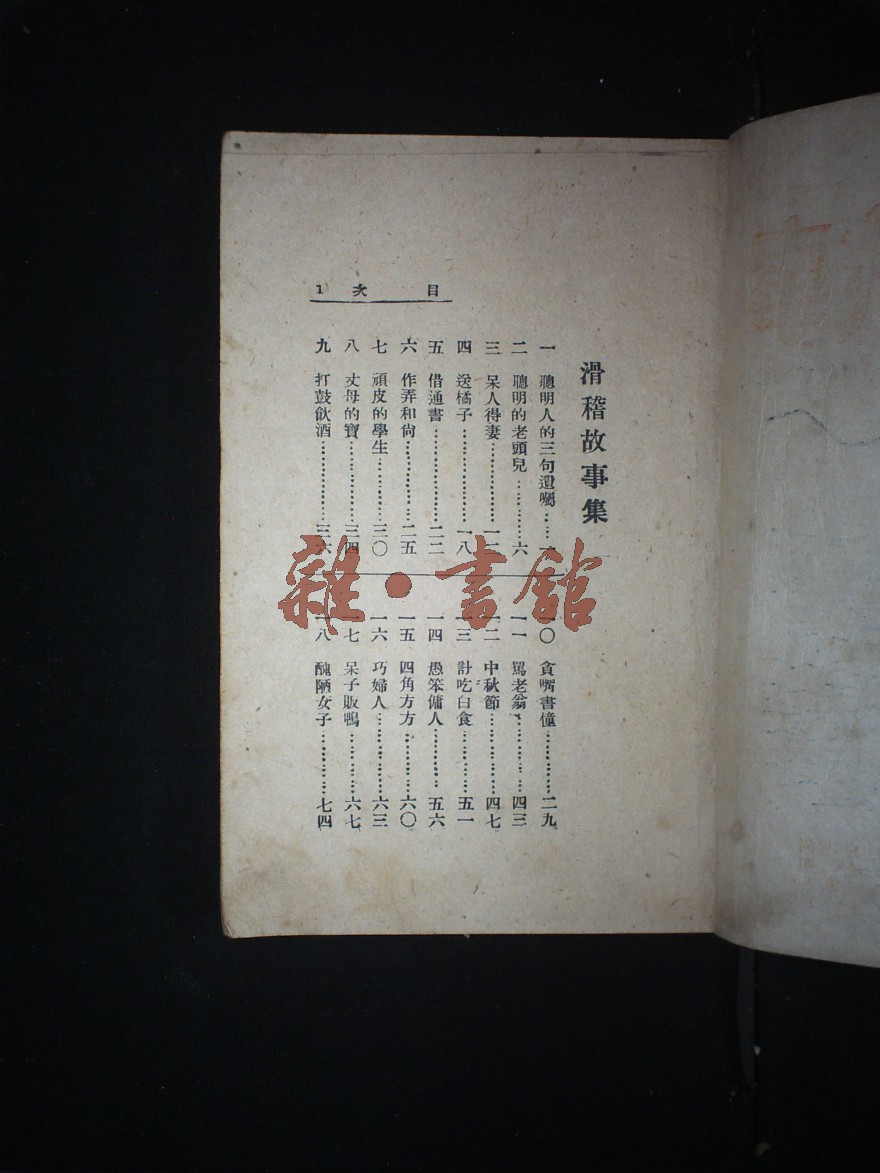 目 次 1
滑稽故事集
一 聰明人的三句遺囑……一
二 聰明的老頭兒……六
三 呆人得妻……一二
四 送橘子……一八
五 借通書……二二
六 作弄和尚……二五
七 頑皮的學生……三〇
八 丈母的寶……三四
九 打鼓飲酒……三六
一〇 貪嘴書僮……二九
一一 罵老翁……四三
一二 中秋節……四七
一三 計吃白食……五一
一四 愚笨傭人……五六
一五 四角方方……六〇
一六 巧婦人……六三
一七 呆子販鴨……六七
一八 醜陋女子……七四
雜·書館